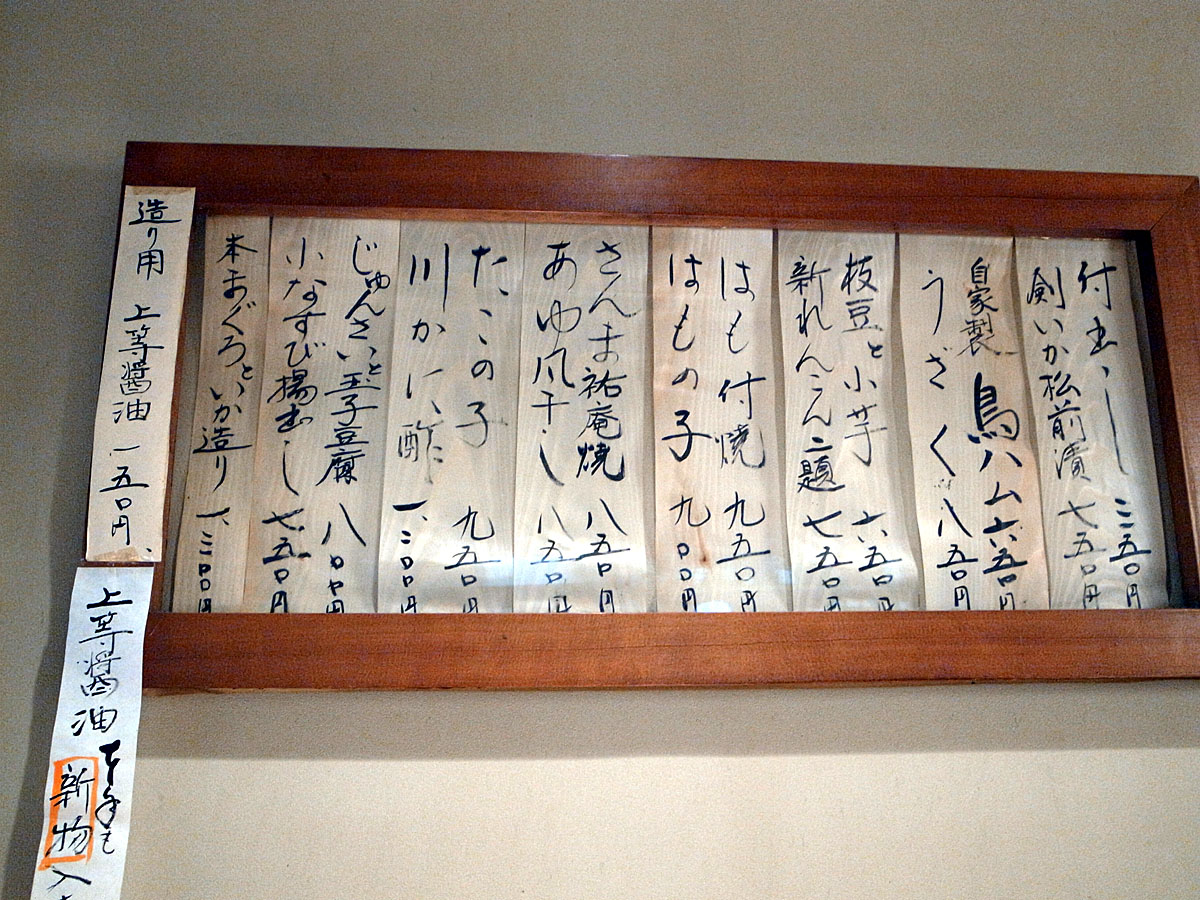 付出し 三五〇円
剣いか松前漬 七五〇円
自家製 鳥ハム 六五〇円
うざく 八五〇円
枝豆と小芋 六五〇円
新れんこん二題 七五〇円
はも付焼 九五〇円
はもの子 九〇〇円
さんま祐庵焼 八五〇円
あゆ風干し 八五〇円
たこの子 九五〇円
川かに酢 一、二〇〇円
じゅんさいと玉子豆腐 八〇〇円
小なすび揚出し 七五〇円
本まぐろといか造り 一、三〇〇円
造り用 上等醤油 一五〇円、
上等醤油
新物入